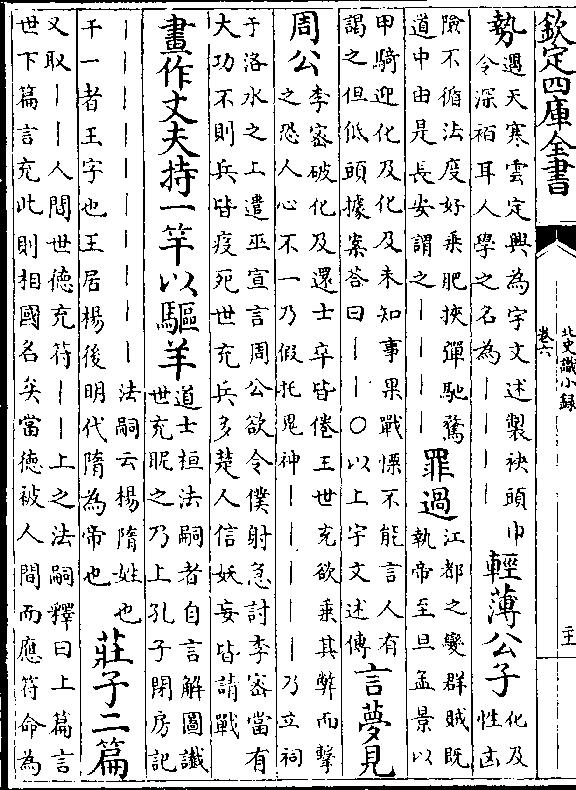 欽定四庫全書
北史識小録
卷六
勢
遇天寒雲定興為宇文述製袂頭巾
令深袹耳人學之名為｜｜｜｜
輕薄公子
化及
性凶
險不循法度好乘肥挾彈馳騖
道中由是長安謂之｜｜｜｜
罪過
江都之變群賊既
執帝至旦孟景以
甲騎迎化及化及未知事果戰慄不能言人有
謁之但低頭據案答曰｜｜○以上宇文述傳
言夢見
周公
李密破化及還士卒皆倦王世充欲乘其弊而擊
之恐人心不一乃假托鬼神｜｜｜｜乃立祠
于洛水之上遣巫宣言周公欲令僕射急討李密當有
大功不則兵皆疫死世充兵多楚人信妖妄皆請戰
畫作丈夫持一竿以驅羊
道士桓法嗣者自言解圖讖
世充昵之乃上孔子閉房記
｜｜｜｜｜｜｜｜｜｜法嗣云楊隋姓也
干一者王字也王居楊後明代隋為帝也
莊子二篇
又取｜｜人間世德充符｜｜上之法嗣釋曰上篇言
世下篇言充此則相國名矣當德被人間而應符命為